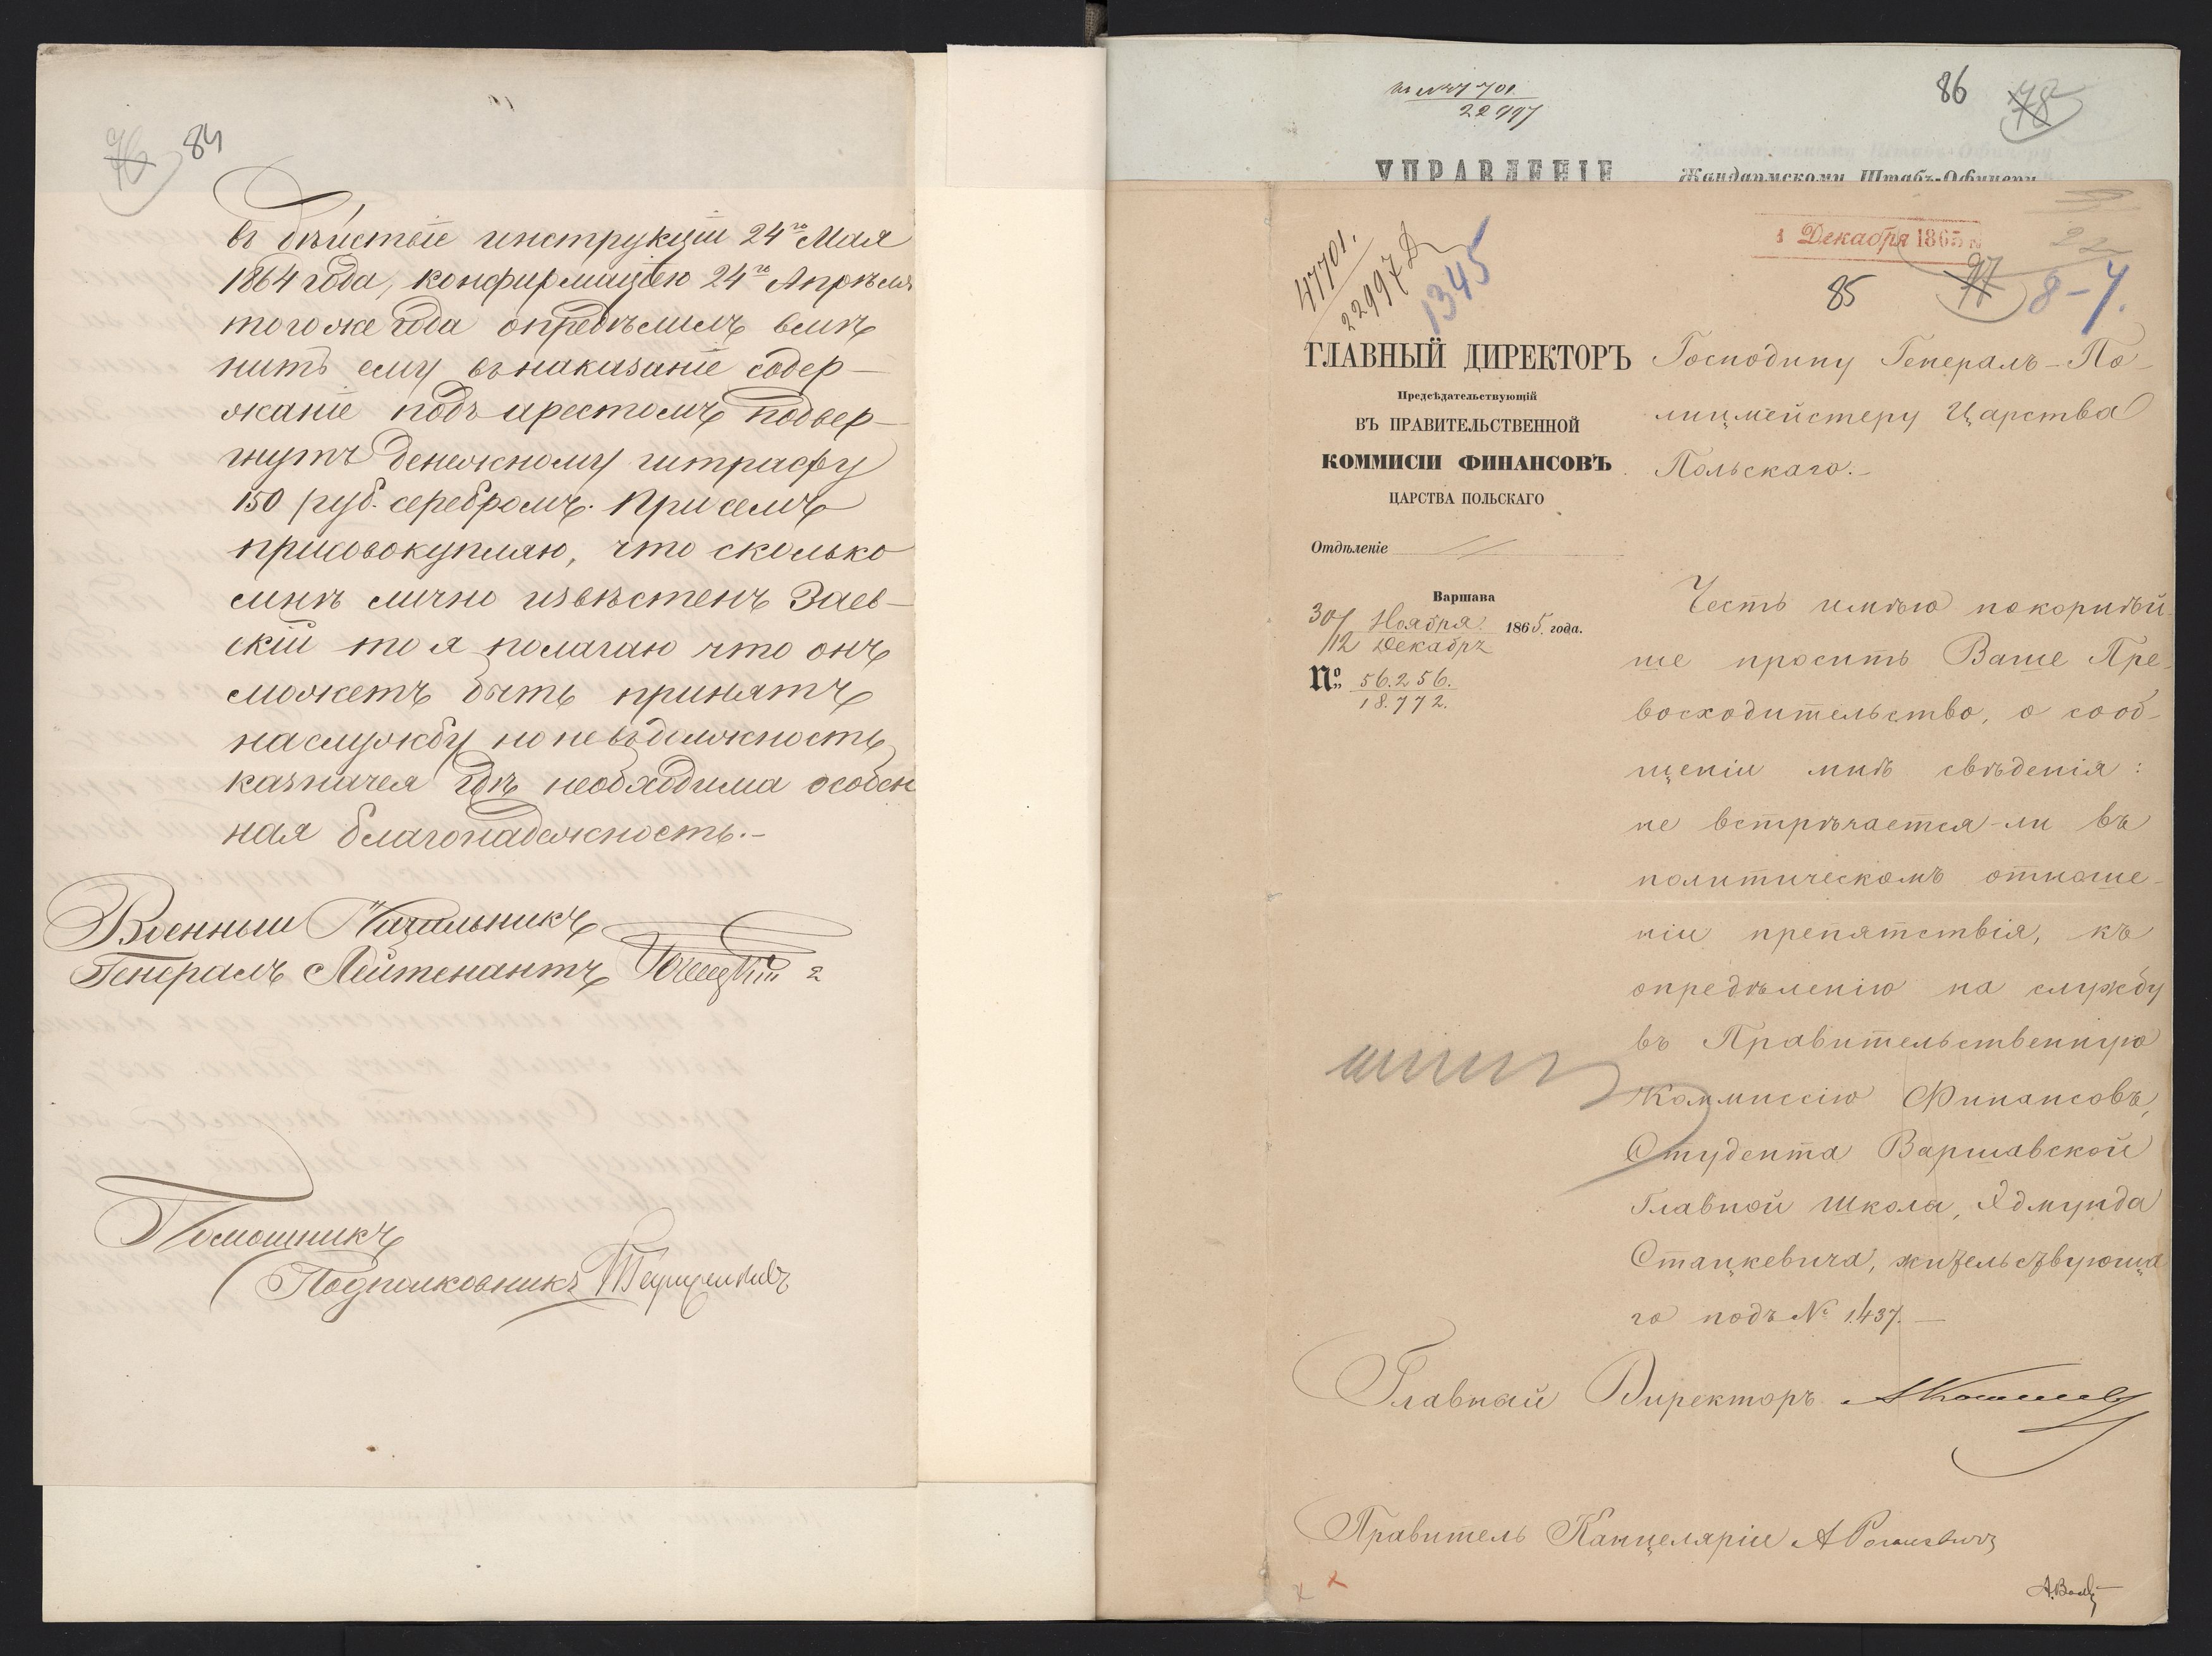 84
въ дѣйствіе инструкціи 24го Мая
1864 года, конфирмаціею 24го Апрѣля
тогоже года опредѣлилъ вмѣ
нить ему въ наказаніе содер-
жаніе подъ арестомъ подвер-
гнутъ денежному штрафу
150 руб. серебромъ. При семъ
присовокупляю, что сколько
мнѣ лично извѣстенъ Заев-
скій то я полагаю что онъ
можетъ быть принятъ
на службу но не въ должность
казначея гдѣ необходима особен
ная благонадежность.-
Военный Начальникъ
Генералъ Лейтенантъ
Помошникъ
Подполковникъ
22997
86
78
УПРАВЛЕНІЕ
Жандармскому Штабъ-Офицеру
47701.
22997
1345
1 Декабря 1865
22
85
77
8-7.
ГЛАВНЫЙ ДИРЕКТОРЪ
Предсѣдательствующій
ВЪ ПРАВИТЕЛЬСТВЕННОЙ
КОММИСІИ ФИНАНСОВЪ
ЦАРСТВА ПОЛЬСКАГО
Отдѣленіе
Варшава
30/12 Ноября Декабря 1865 года.
№ 56.256.
18.772.
Господину Генералъ-По-
лицмейстеру Царства
Польскаго.-
Честь имѣю покорнѣй-
ше просить Ваше Пре-
восходительство, о сооб-
щеніи мнѣ свѣденія:
не встрѣчается-ли въ
политическомъ отноше-
ніи препятствія, къ
опредѣленію на службу
въ Правительственную
Коммиссію Финансовъ,
Студента Варшавской
Главной Школы, Эдмунда
Станкевича, жительствующа
го подъ № 1437.-
Главный Директоръ
Правитель Канцеляріи